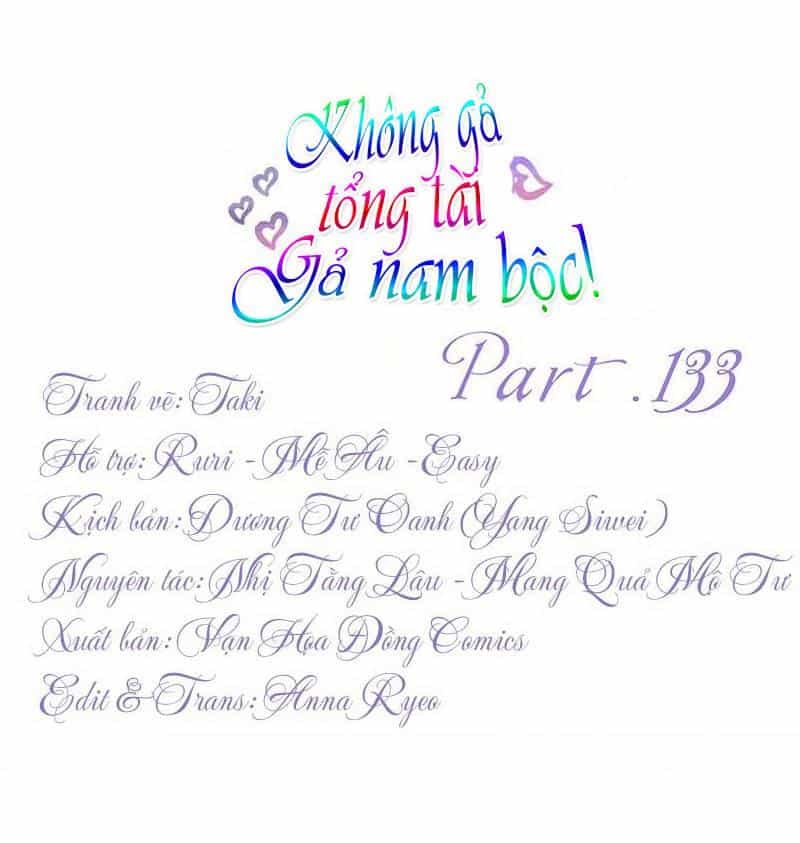 Không gả
tổng tài
Gả nam bộc!
Part .133
Tranh vẽ: Taki
Hỗ trợ: Ruri - Mề Âu - Easy
Kịch bản: Dương Tư Oanh (Yang Siwei)
Nguyên tác: Nhị Tằng Lâu - Mang Quả Mô Tư
Xuất bản: Vạn Họa Đồng Comics
Edit & Trans: Anna Ryeo